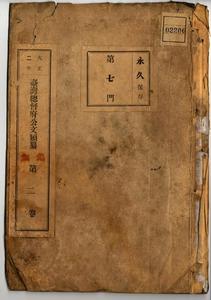 02206
永久保存
第七門
大正二年
臺灣總督府公文類纂
第二卷